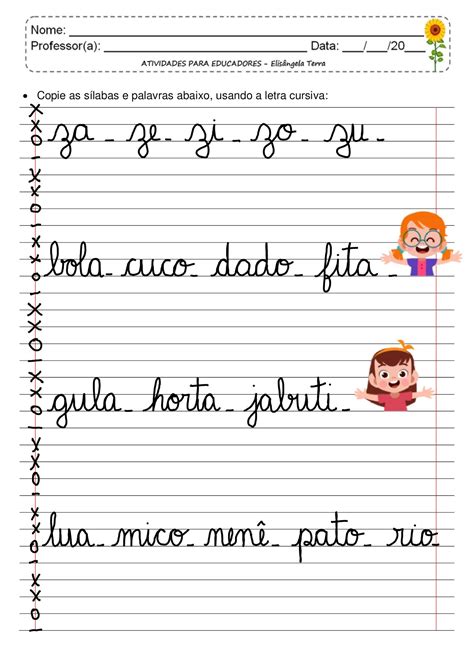 Nome:
Professor(a): Data: __/__/20__
ATIVIDADES PARA EDUCADORES - Elisângela Terra
• Copie as sílabas e palavras abaixo, usando a letra cursiva:
za - ze - zi - zo - zu -
bola - cuco - dado - fita -
gula - horta - jabuti -
lua - mico - nenê - pato - rio